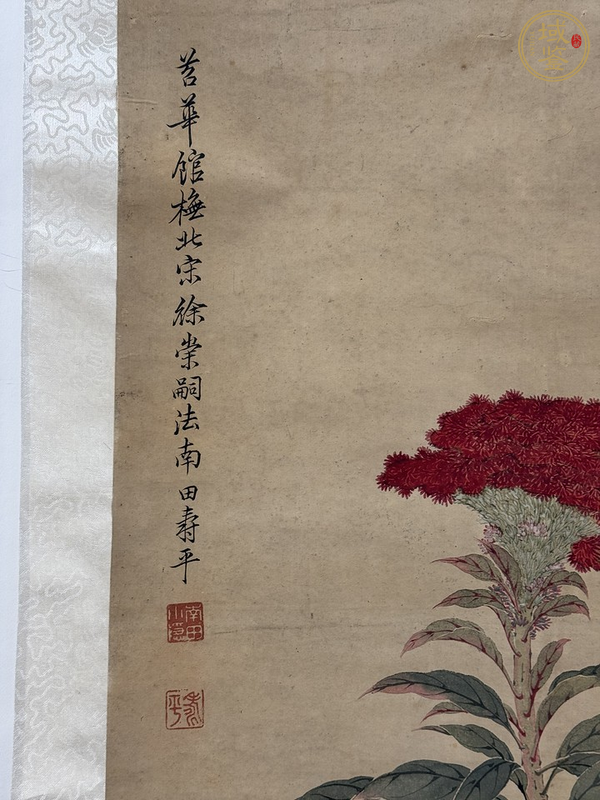 苕華館橅北宋徐崇嗣法南田壽平
南田小隱
壽平
域鉴